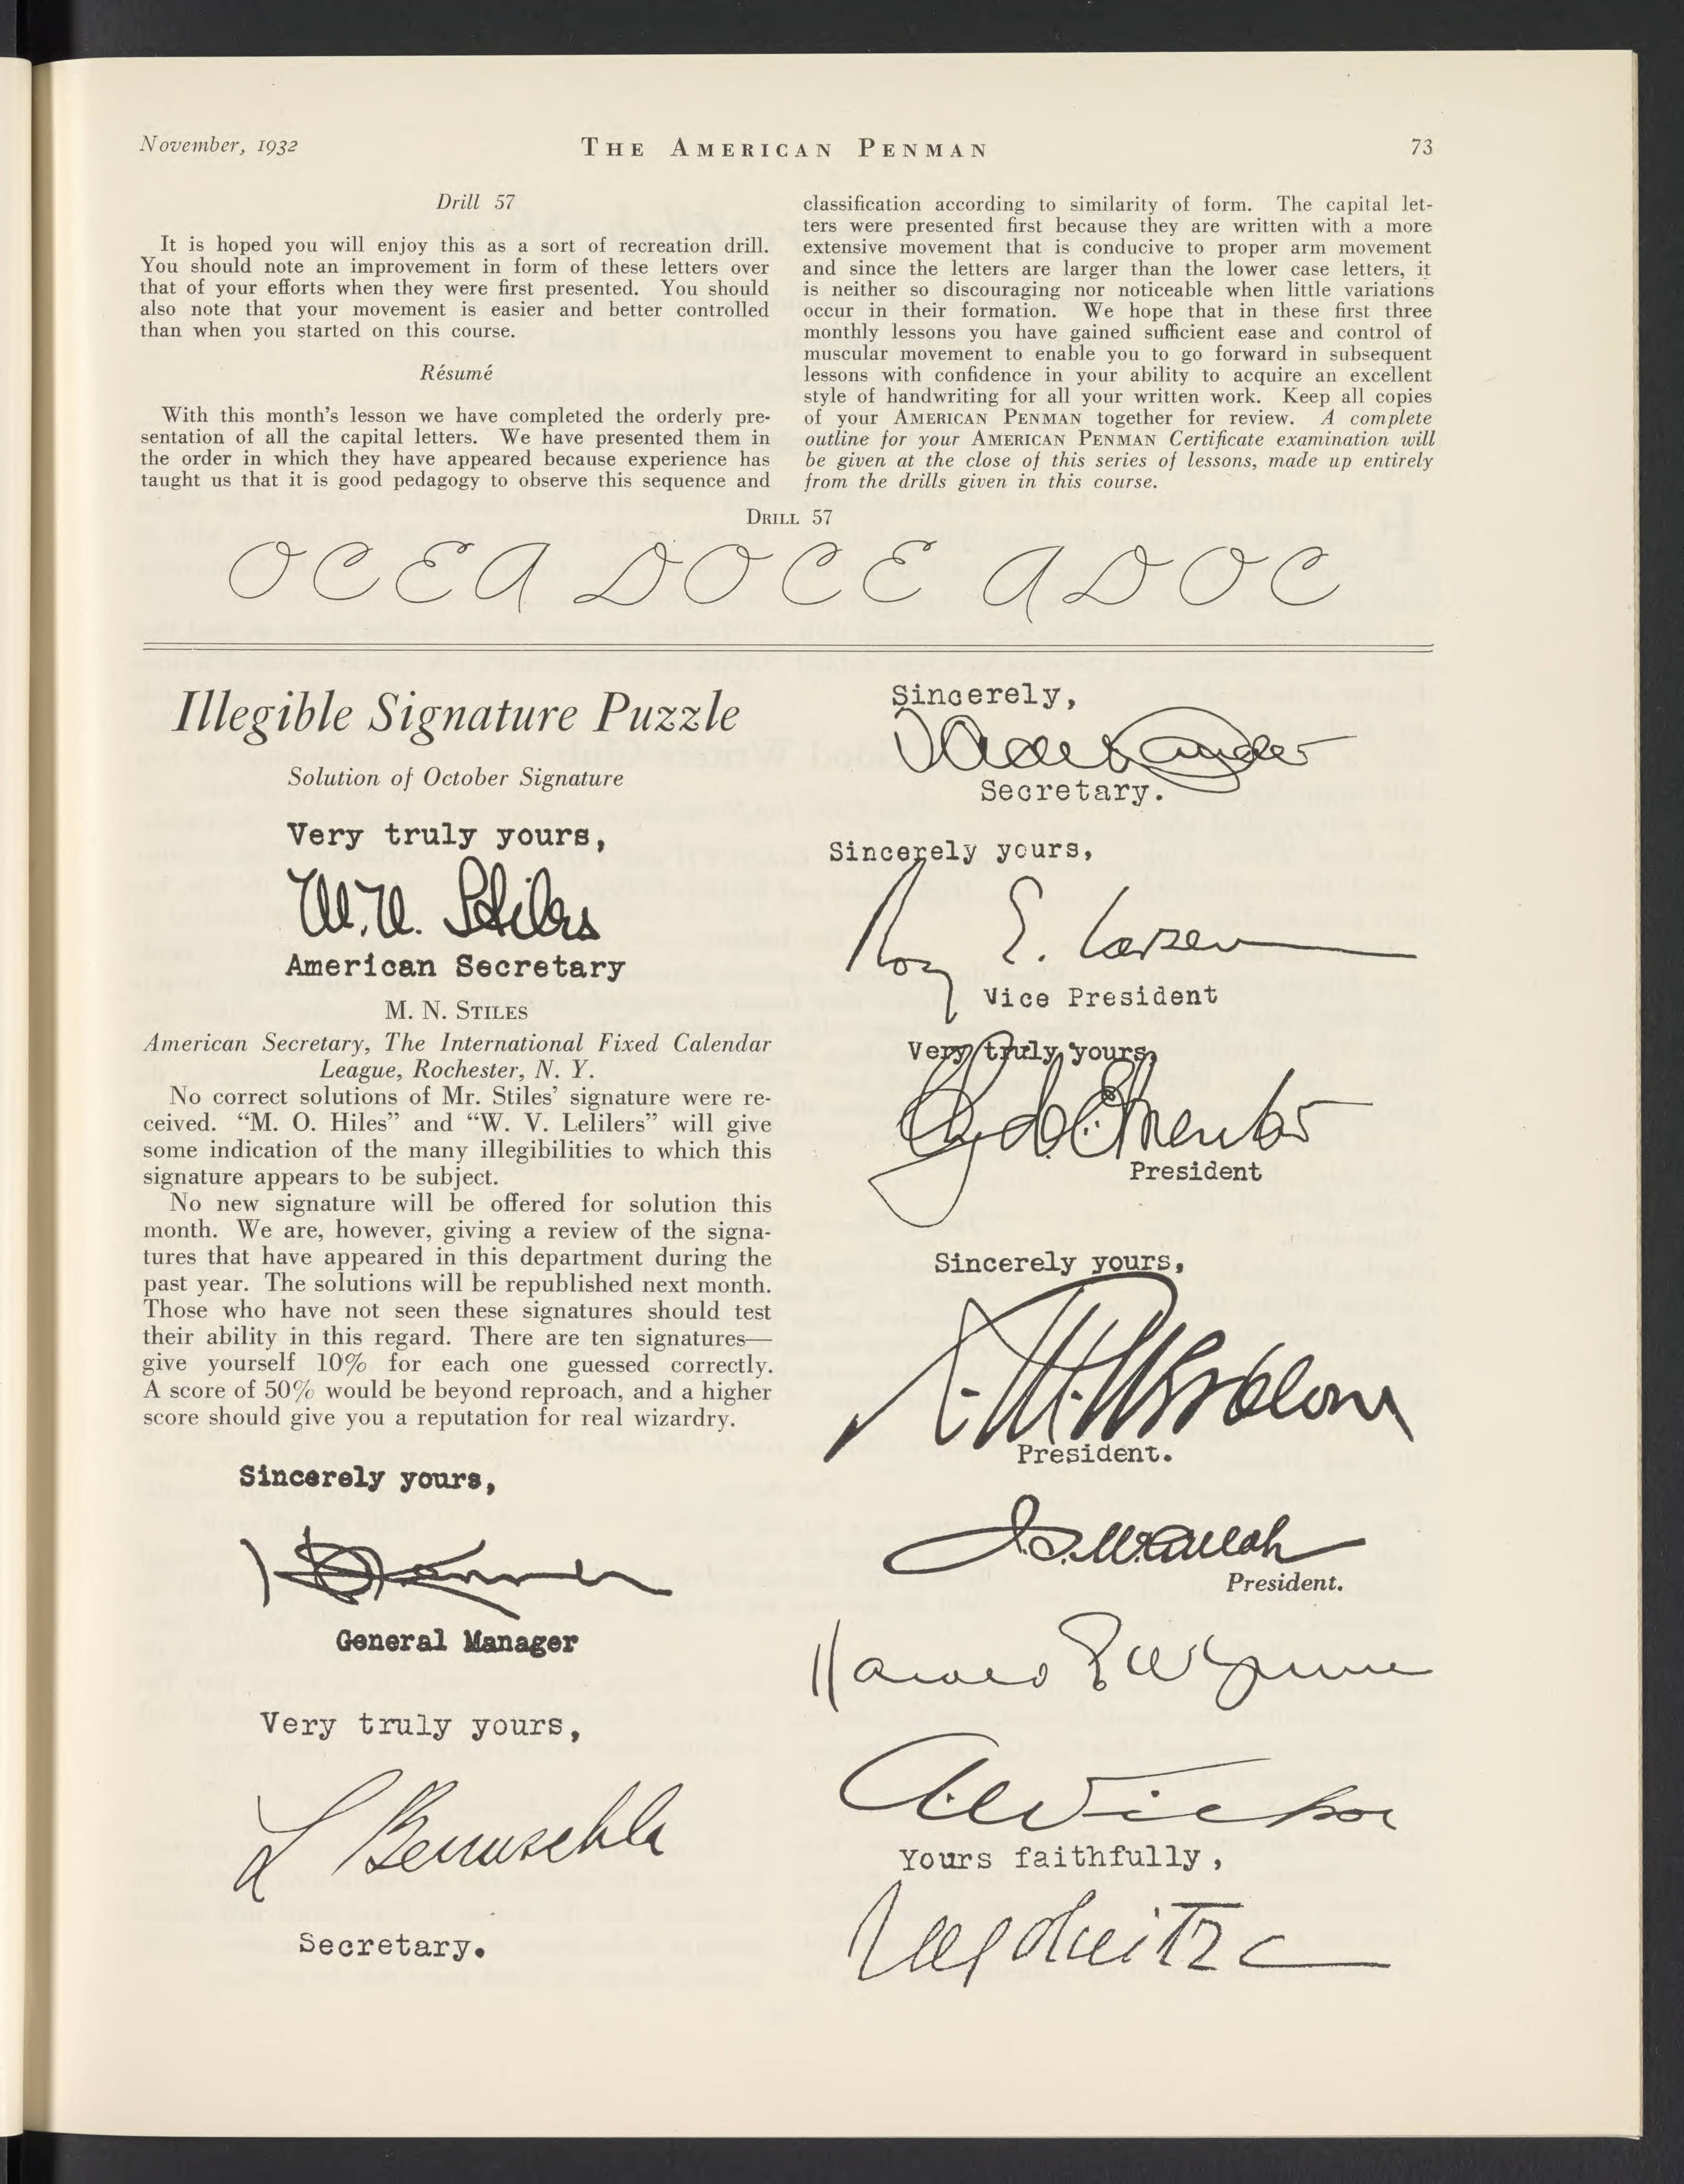 November, 1932
THE AMERICAN PENMAN
73
Drill 57
It is hoped you will enjoy this as a sort of recreation drill.
You should note an improvement in form of these letters over
that of your efforts when they were first presented. You should
also note that your movement is easier and better controlled
than when you started on this course.
Résumé
With this month's lesson we have completed the orderly pre-
sentation of all the capital letters. We have presented them in
the order in which they have appeared because experience has
taught us that it is good pedagogy to observe this sequence and
classification according to similarity of form. The capital let-
ters were presented first because they are written with a more
extensive movement that is conducive to proper arm movement
and since the letters are larger than the lower case letters, it
is neither so discouraging nor noticeable when little variations
occur in their formation. We hope that in these first three
monthly lessons you have gained sufficient ease and control of
muscular movement to enable you to go forward in subsequent
lessons with confidence in your ability to acquire an excellent
style of handwriting for all your written work. Keep all copies
of your AMERICAN PENMAN together for review. A complete
outline for your AMERICAN PENMAN Certificate examination will
be given at the close of this series of lessons, made up entirely
from the drills given in this course.
DRILL 57
O C E A D O C E A D O C
Illegible Signature Puzzle
Solution of October Signature
Very truly yours,
American Secretary
M. N. STILES
American Secretary, The International Fixed Calendar
League, Rochester, N. Y.
No correct solutions of Mr. Stiles' signature were re-
ceived. "M. O. Hiles" and "W. V. Lelilers" will give
some indication of the many illegibilities to which this
signature appears to be subject.
No new signature will be offered for solution this
month. We are, however, giving a review of the signa-
tures that have appeared in this department during the
past year. The solutions will be republished next month.
Those who have not seen these signatures should test
their ability in this regard. There are ten signatures—
give yourself 10% for each one guessed correctly.
A score of 50% would be beyond reproach, and a higher
score should give you a reputation for real wizardry.
Sincerely yours,
General Manager
Very truly yours,
Secretary.
Sincerely,
Secretary.
Sincerely yours,
Roy E. Larsen
Vice President
Very truly yours,
President
Sincerely yours,
President.
President.
Yours faithfully,